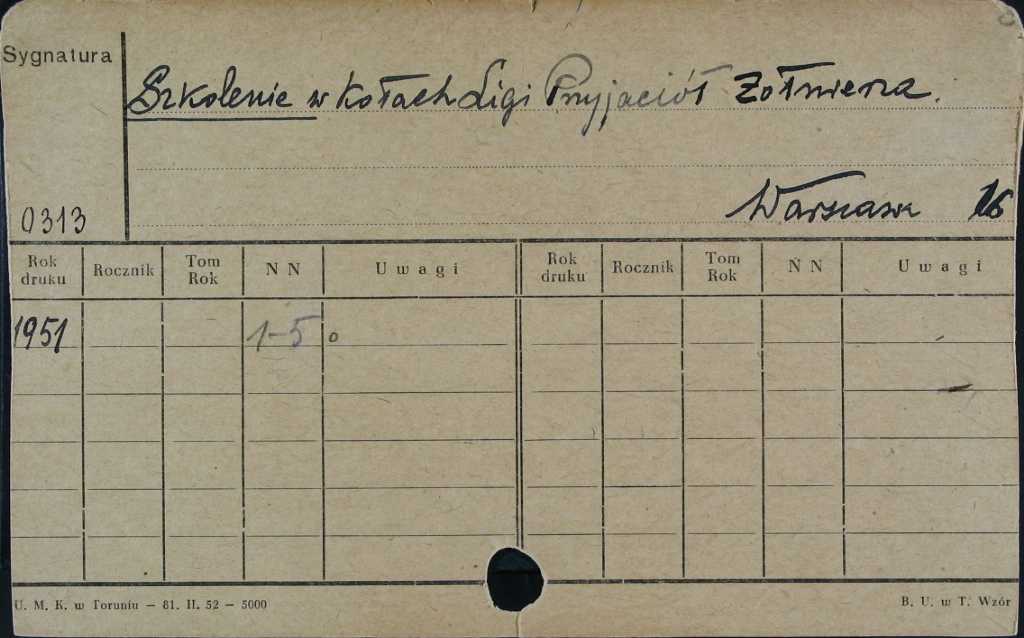 Sygnatura
Szkolenie w Kołach Ligi Przyjaciół Żołnierza.
Warszawa 16
0313
Rok druku Rocznik Tom Rok N N Uwagi Rok druku Rocznik Tom Rok N N Uwagi
1951 1-5 o
U. M. K. w Toruniu — 81. II. 52 — 5000 B. U. w T. Wzór